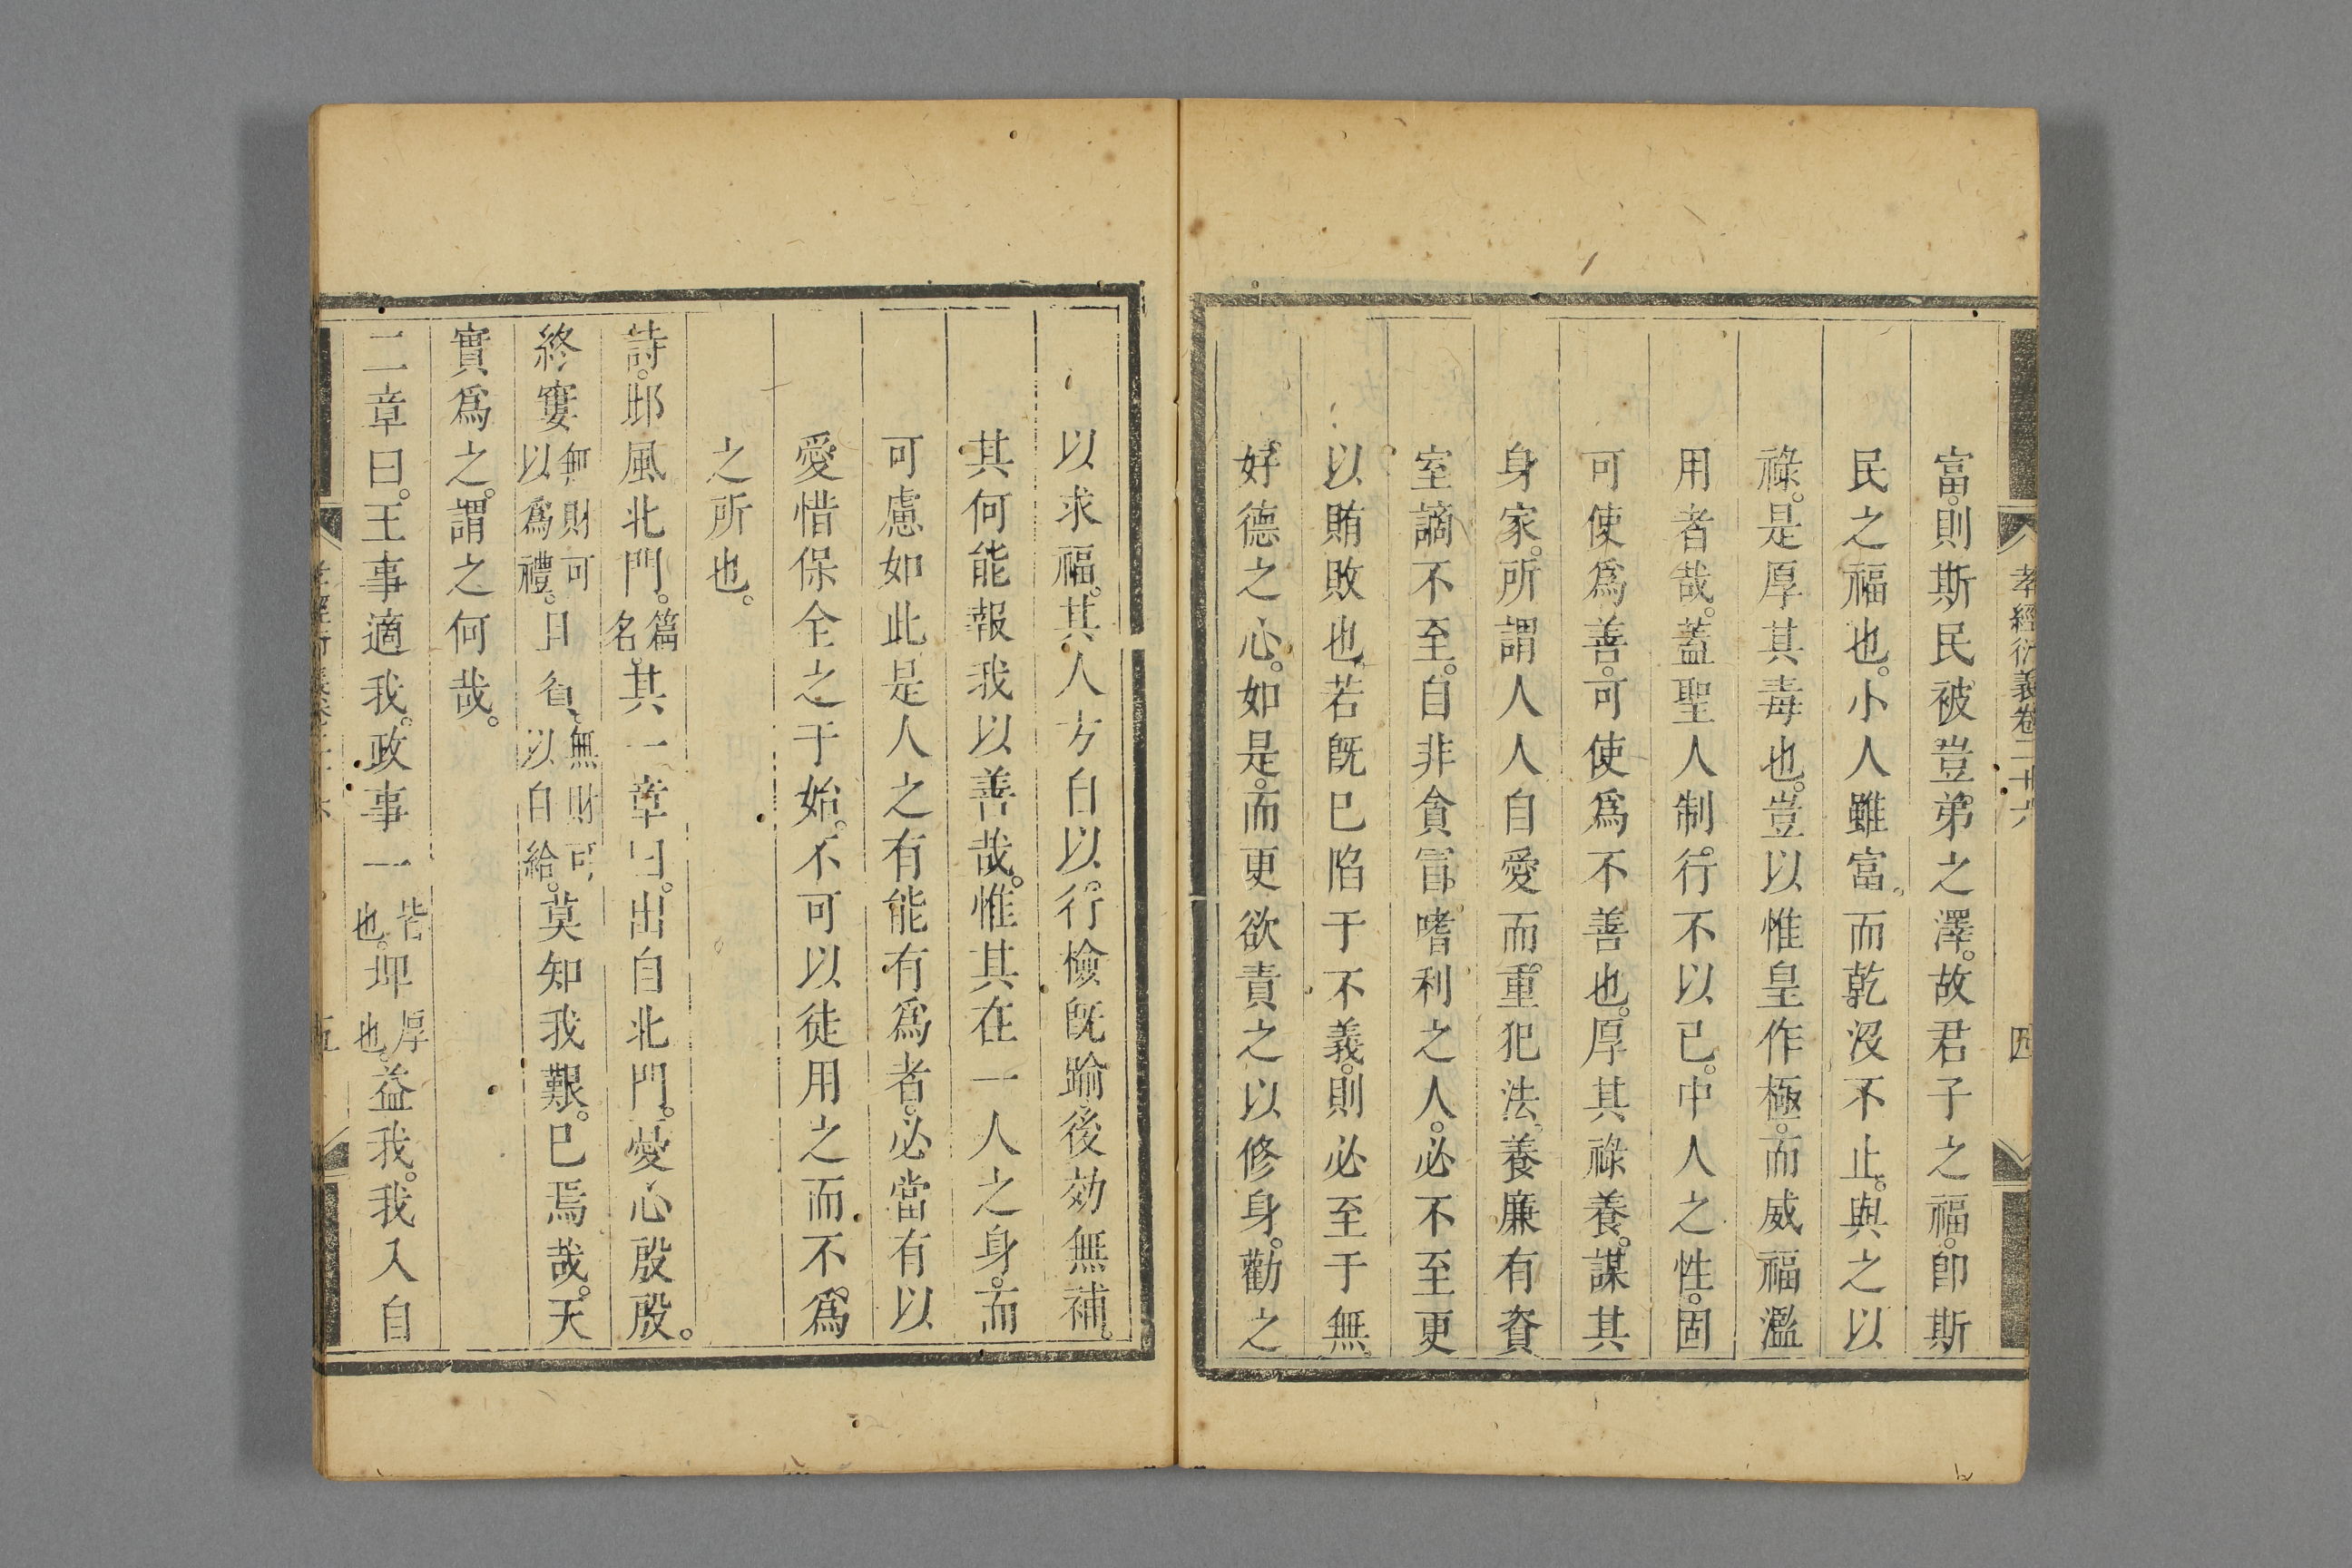 孝經衍義卷二十六
四
富。則斯民被豈弟之澤。故君子之福。卽斯
民之福也。小人雖富。而乾沒不止。與之以
祿。是厚其毒也。豈以惟皇作極。而威福濫
用者哉。蓋聖人制行。不以已。中人之性。固
可使爲善。可使爲不善也。厚其祿養。謀其
身家。所謂人人自愛而重犯法。養廉有資
室謫不至。自非貪冒嗜利之人。必不至更
以賄敗也。若旣巳陷于不義。則必至于無
好德之心。如是。而更欲責之以修身。勸之
以求福。其人方自以行檢旣踰後効無補。
其何能報我以善哉。惟其在一人之身。而
可慮如此。是人之有能有爲者。必當有以
愛惜保全之于始。不可以徒用之而不爲
之所也。
詩。邶風北門。篇名。其一章曰。出自北門。憂心殷殷。
終窶無財可以爲禮。且貧無財可以自給。莫知我艱。巳焉哉。天
實爲之。謂之何哉。
二章曰。王事適我。政事一皆也。埤厚也。益我。我入自
五